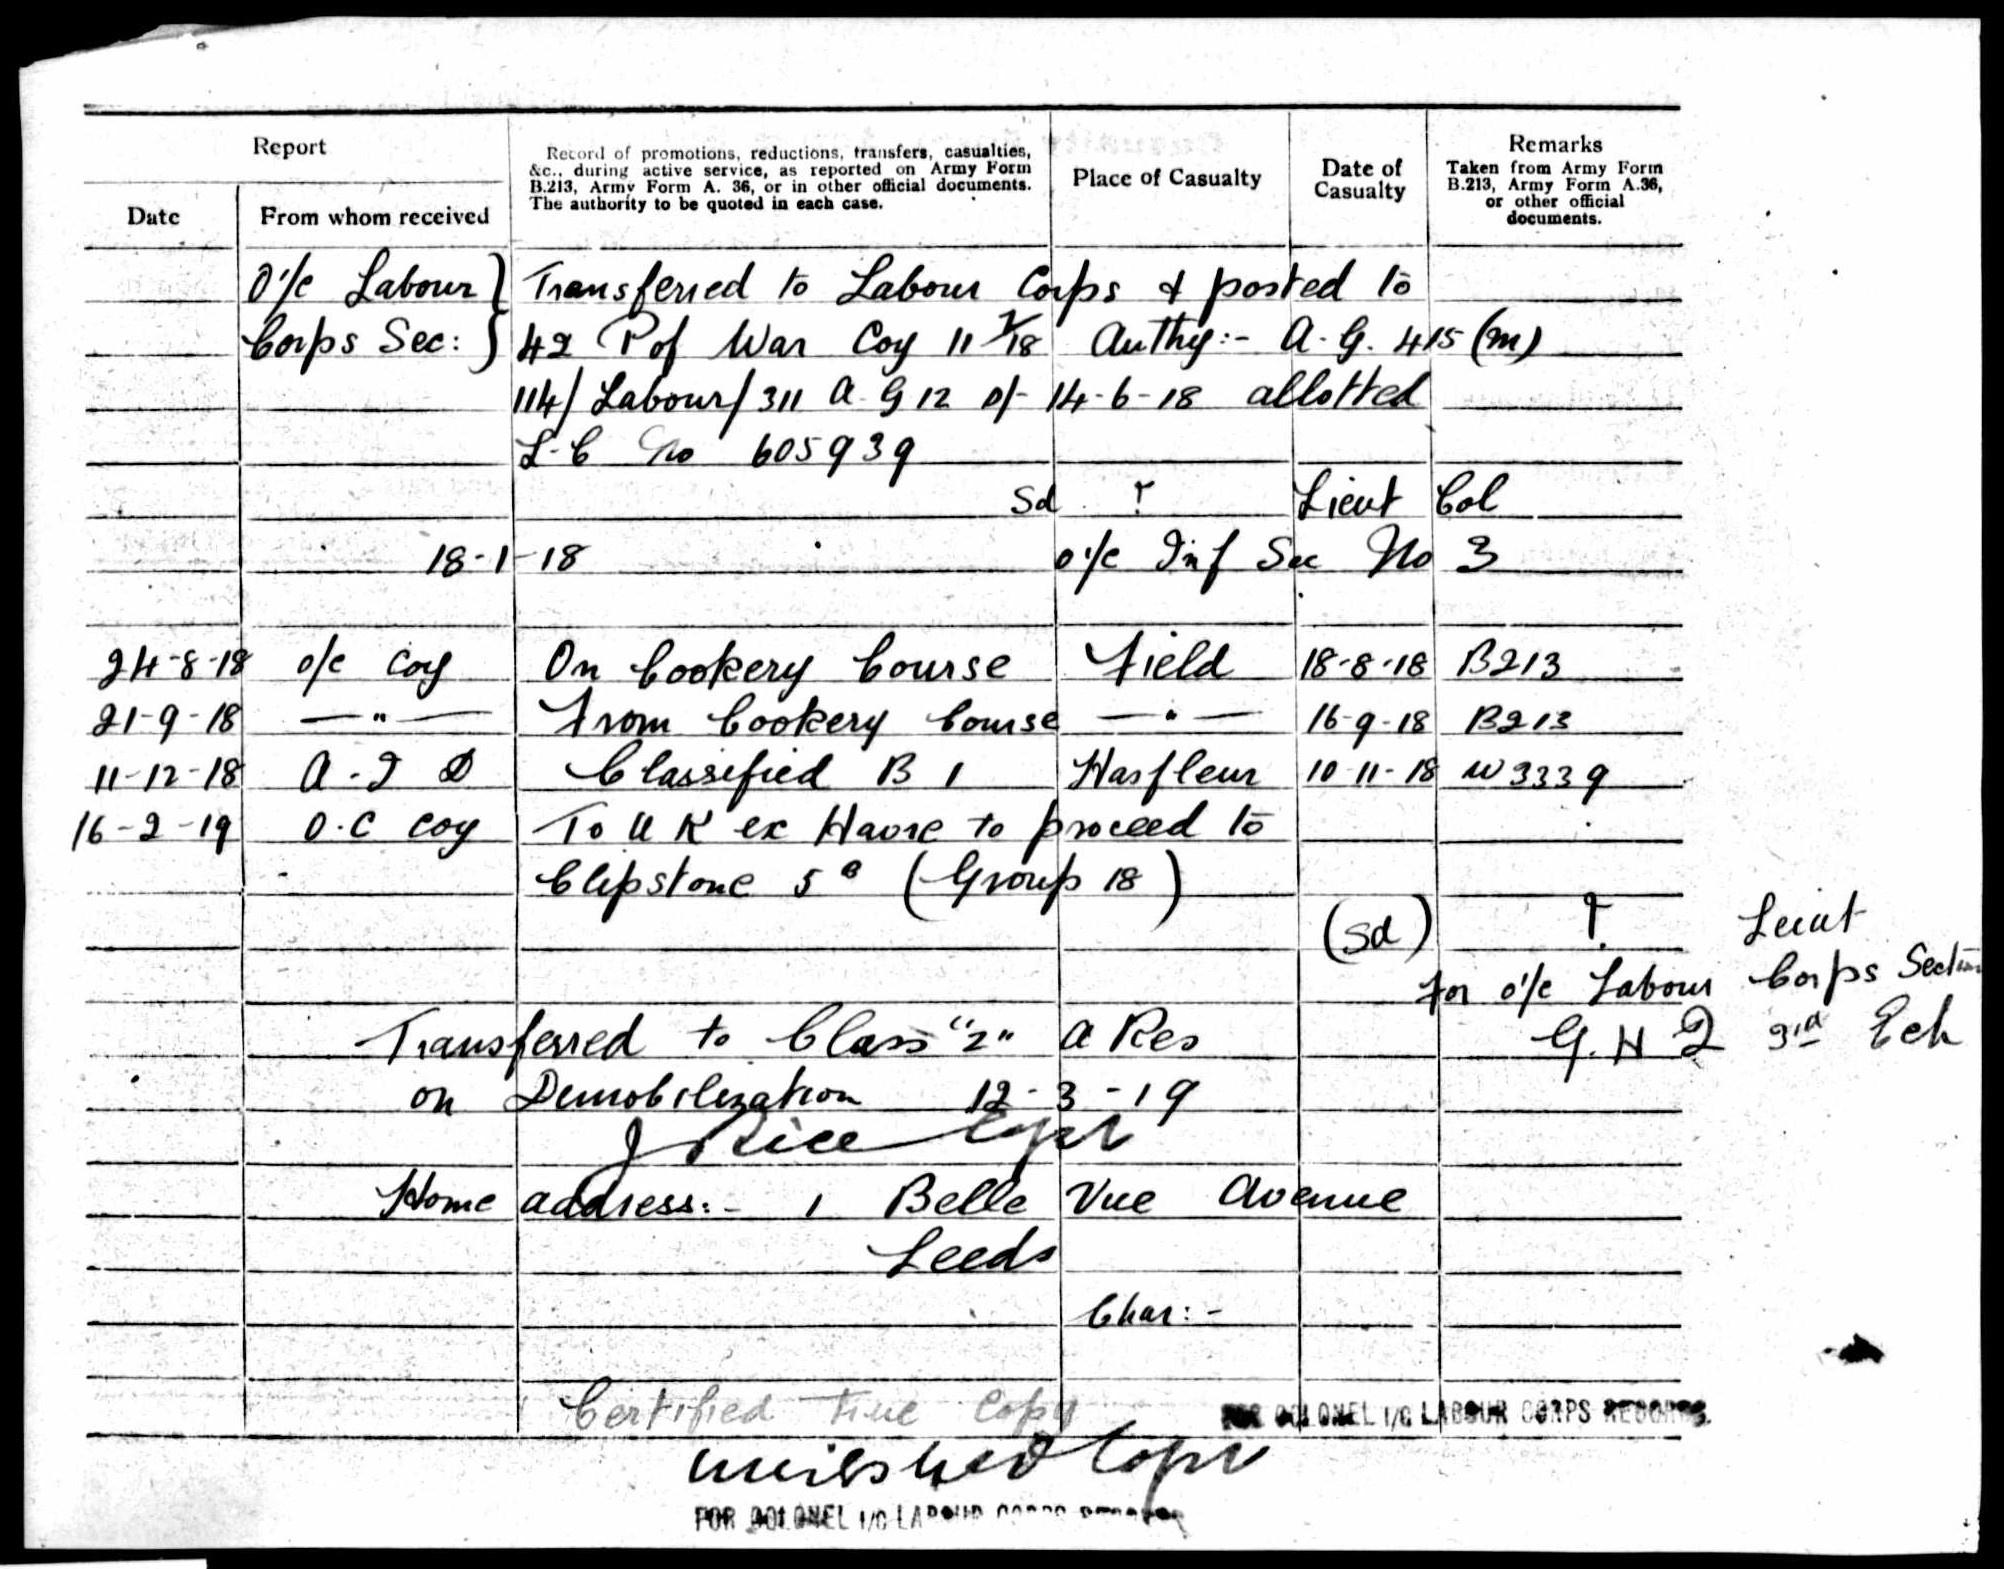 Report
Date
From whom received
Record of promotions, reductions, transfers, casualties,
&c., during active service, as reported on Army Form
B.213, Army Form A. 36, or in other official documents.
The authority to be quoted in each case.
Place of Casualty
Date of
Casualty
Remarks
Taken from Army Form
B.213, Army Form A.36,
or other official
documents.
O'/c Labour } Transferred to Labour Corps & posted to
Corps Sec: } 42 P of War Coy 11 /18 Authy:- A.G. 415 (m)
114/ Labour/ 311 A G 12 d/- 14-6-18 allotted
L-C No 605939
Sd ? Lieut Col
18-1-18 o'/c Inf Sec No 3
24-8-18 o/c Coy On Cookery Course Field 18-8-18 B213
21-9-18 —"— From Cookery Course —"— 16-9-18 B213
11-12-18 Classified B 1 Harfleur 10-11-18 W3339
16-2-19 O.C Coy To U K ex Havre to proceed to
Clipstone (Group 18)
(Sd) ? Lieut
For o'/c Labour Corps Section
G.H Q 3rd Ech
Transferred to Class "Z" A Res
on Demobilization 12-3-19
J Rice Capt
Home address:- 1 Belle Vue Avenue
Leeds
Char:-
Certified true Copy
FOR COLONEL I/C LABOUR CORPS RECORDS.
Capt
FOR COLONEL I/C LABOUR CORPS RECORDS